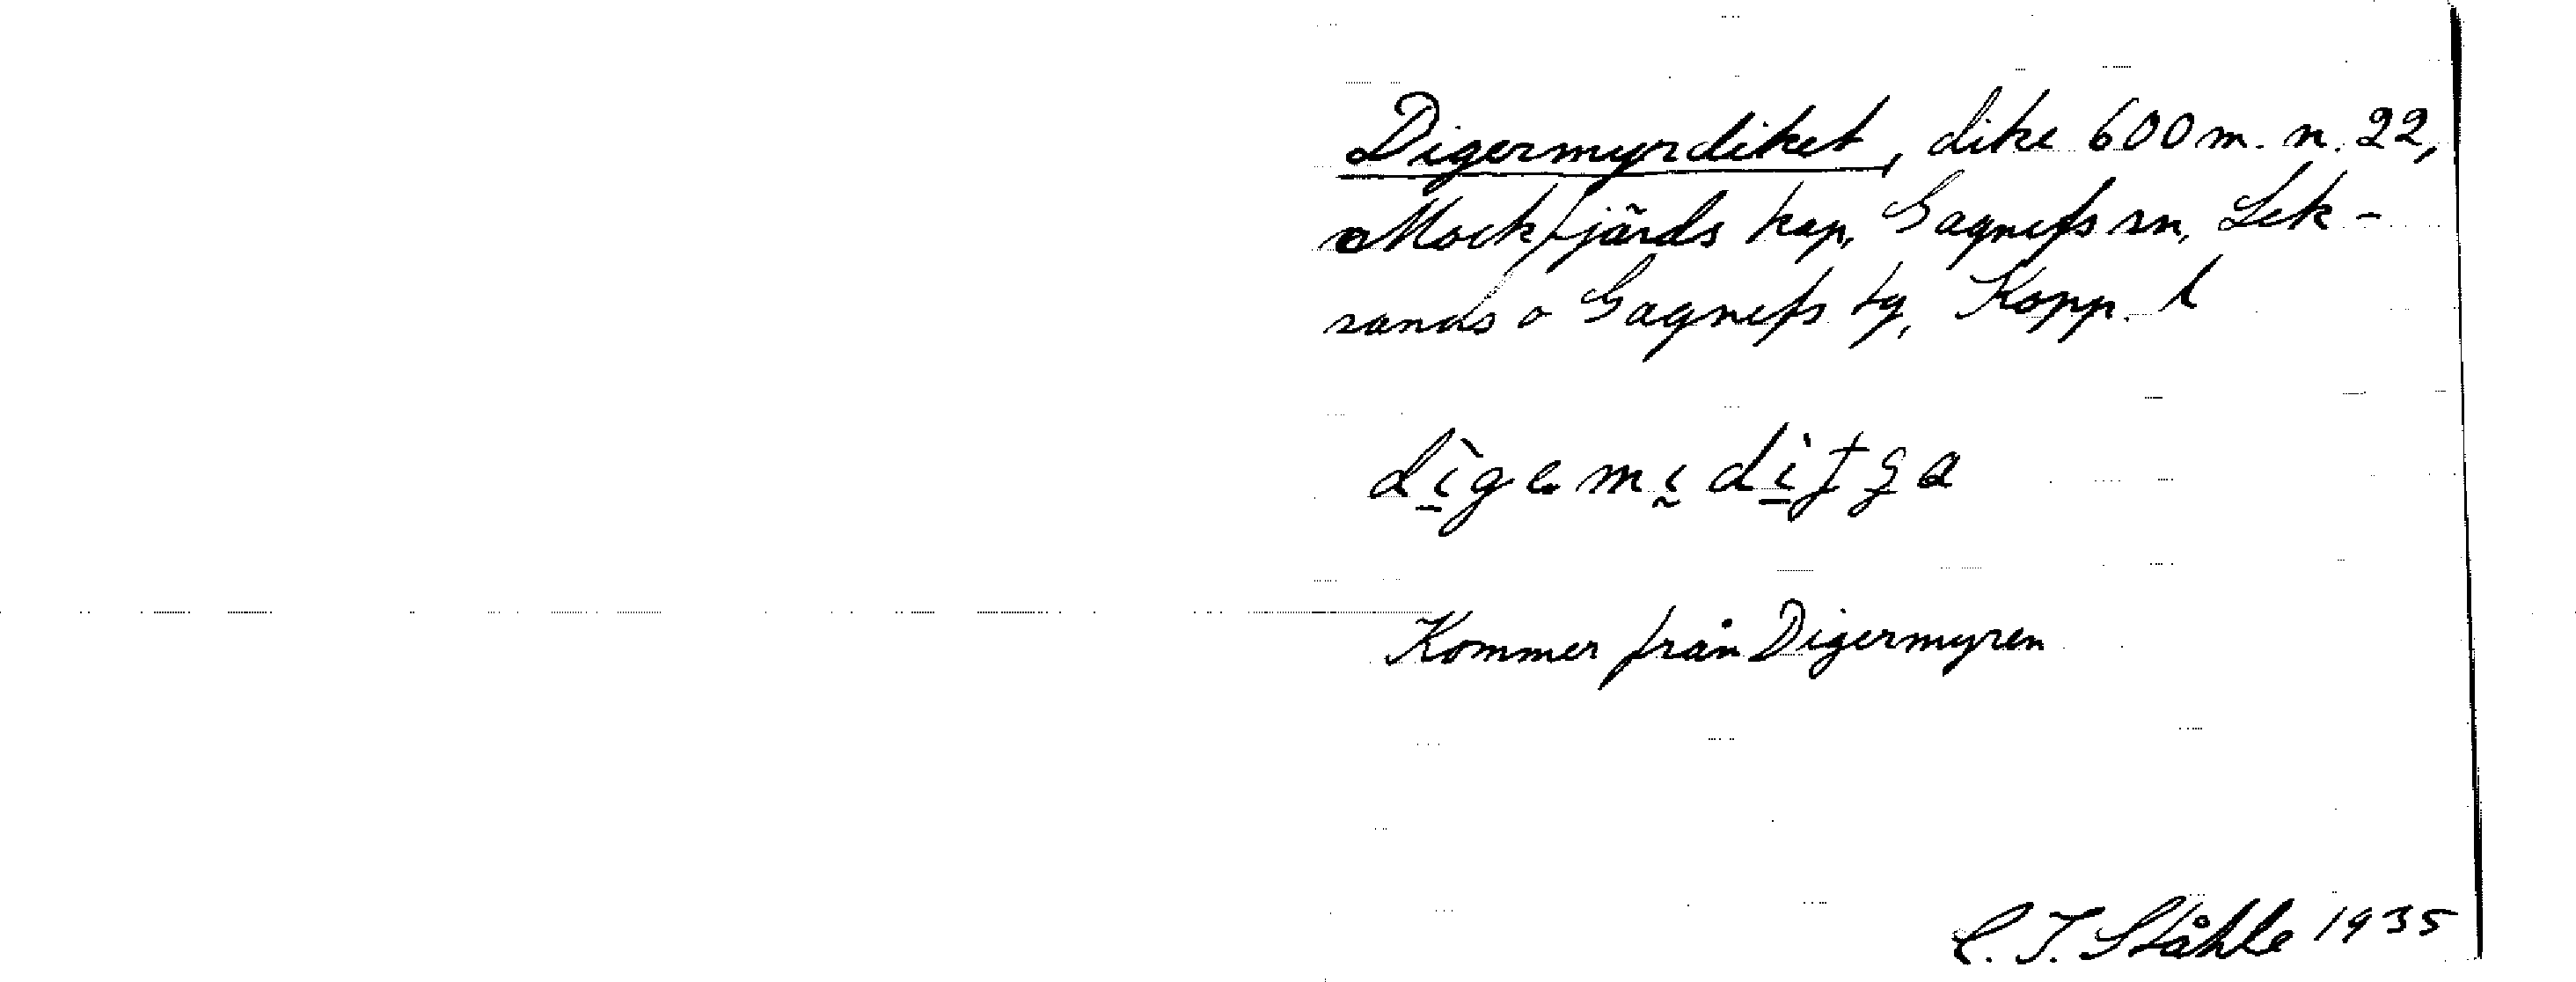 Digermyrdiket, dike 600 m. n. 22,
Mockfjärds kap, Gagnefs sn, Lek-
sands o Gagnefs tg, Kopp. l
Kommer från Digermyren
C. I. Ståhle 1935